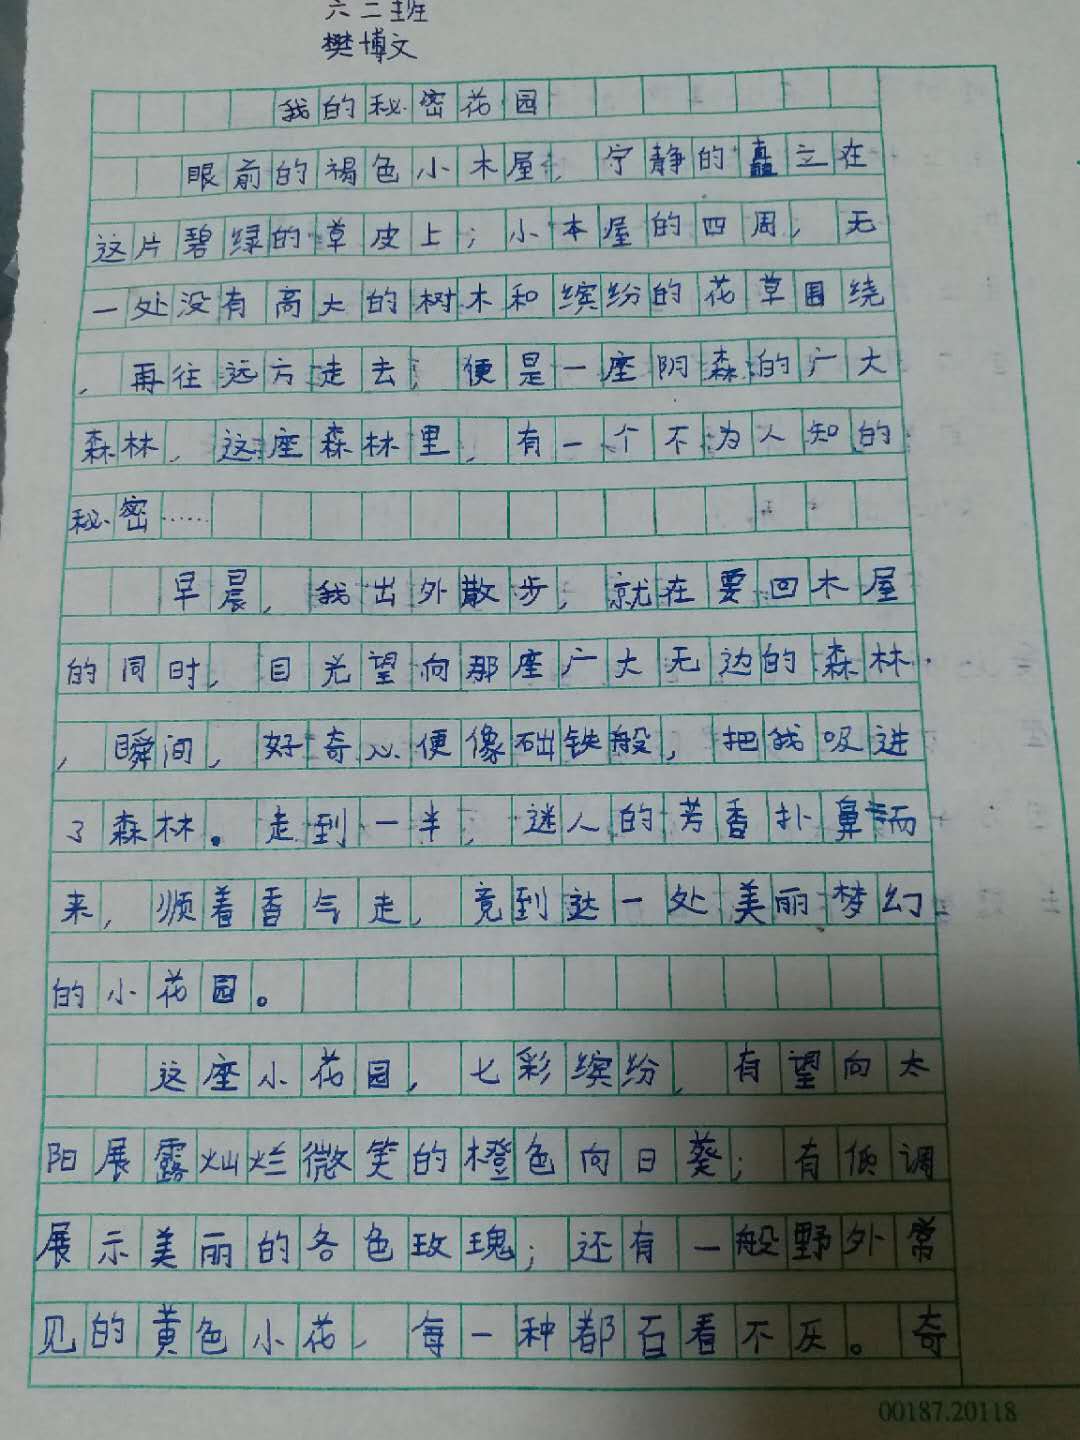 六二班
樊博文
我的秘密花园
眼前的褐色小木屋，宁静的矗立在
这片碧绿的草皮上；小本屋的四周，无
一处没有高大的树木和缤纷的花草围绕
，再往远方走去；便是一座阴森的广大
森林，这座森林里，有一个不为人知的
秘密……
早晨，我出外散步，就在要回木屋
的同时，目光望向那座广大无边的森林
，瞬间，好奇心便像础铁般，把我吸进
了森林。走到一半，迷人的芳香扑鼻而
来，顺着香气走，竟到达一处美丽梦幻
的小花园。
这座小花园，七彩缤纷，有望向太
阳展露灿烂微笑的橙色向日葵；有低调
展示美丽的各色玫瑰；还有一般野外常
见的黄色小花，每一种都百看不厌。奇
00187.20118